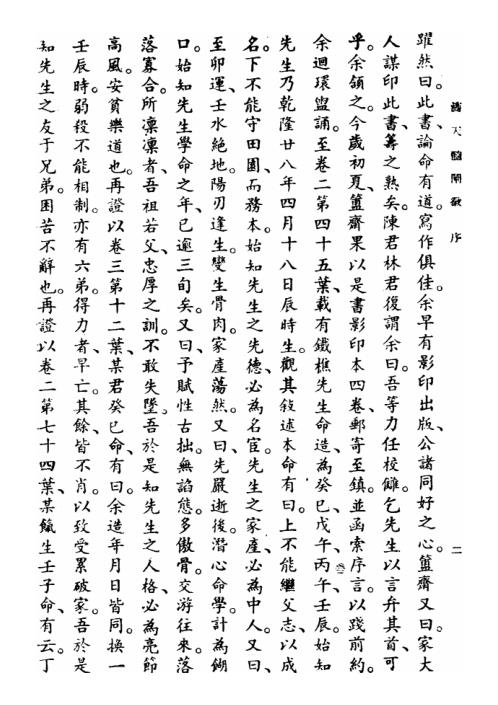 滴天髓闡微 序
二
躍然曰。此書論命有道。寫作俱佳。余早有影印出版、公諸同好之心。簠齋又曰。家大
人謀印此書、籌之熟矣。陳君林君復謂余曰。吾等力任校讎、乞先生以言弁其首、可
乎。余頷之。今歲初夏、簠齋果以是書影印本四卷、郵寄至鎮。並函索序言。以踐前約。
余迴環盥誦。至卷二第四十五葉、載有鐵樵先生命造、為癸巳、戊午、丙午、壬辰。始知
先生乃乾隆廿八年四月十八日辰時生。觀其敘述本命有曰。上不能繼父志、以成
名。下不能守田園、而務本。始知先生之先德、必為名宦。先生之家產、必為中人。又曰、
至卯運、壬水絕地。陽刃逢生。變生骨肉。家產蕩然。又曰、先嚴逝後。潛心命學。計為餬
口。始知先生學命之年、已逾三旬矣。又曰、予賦性古拙。無諂態。多傲骨。交游往來。落
落寡合。所凜凜者、吾祖若父、忠厚之訓。不敢失墜。吾於是知先生之人格、必為亮節
高風。安貧樂道也。再證以卷三第十二葉、某君癸巳命、有曰。余造年月日皆同。換一
壬辰時。弱殺不能相制。亦有六弟。得力者、早亡。其餘、皆不肖。以致受累破家。吾於是
知先生之友于兄弟。困苦不辭也。再證以卷二第七十四葉、某鹺生壬子命、有云。丁